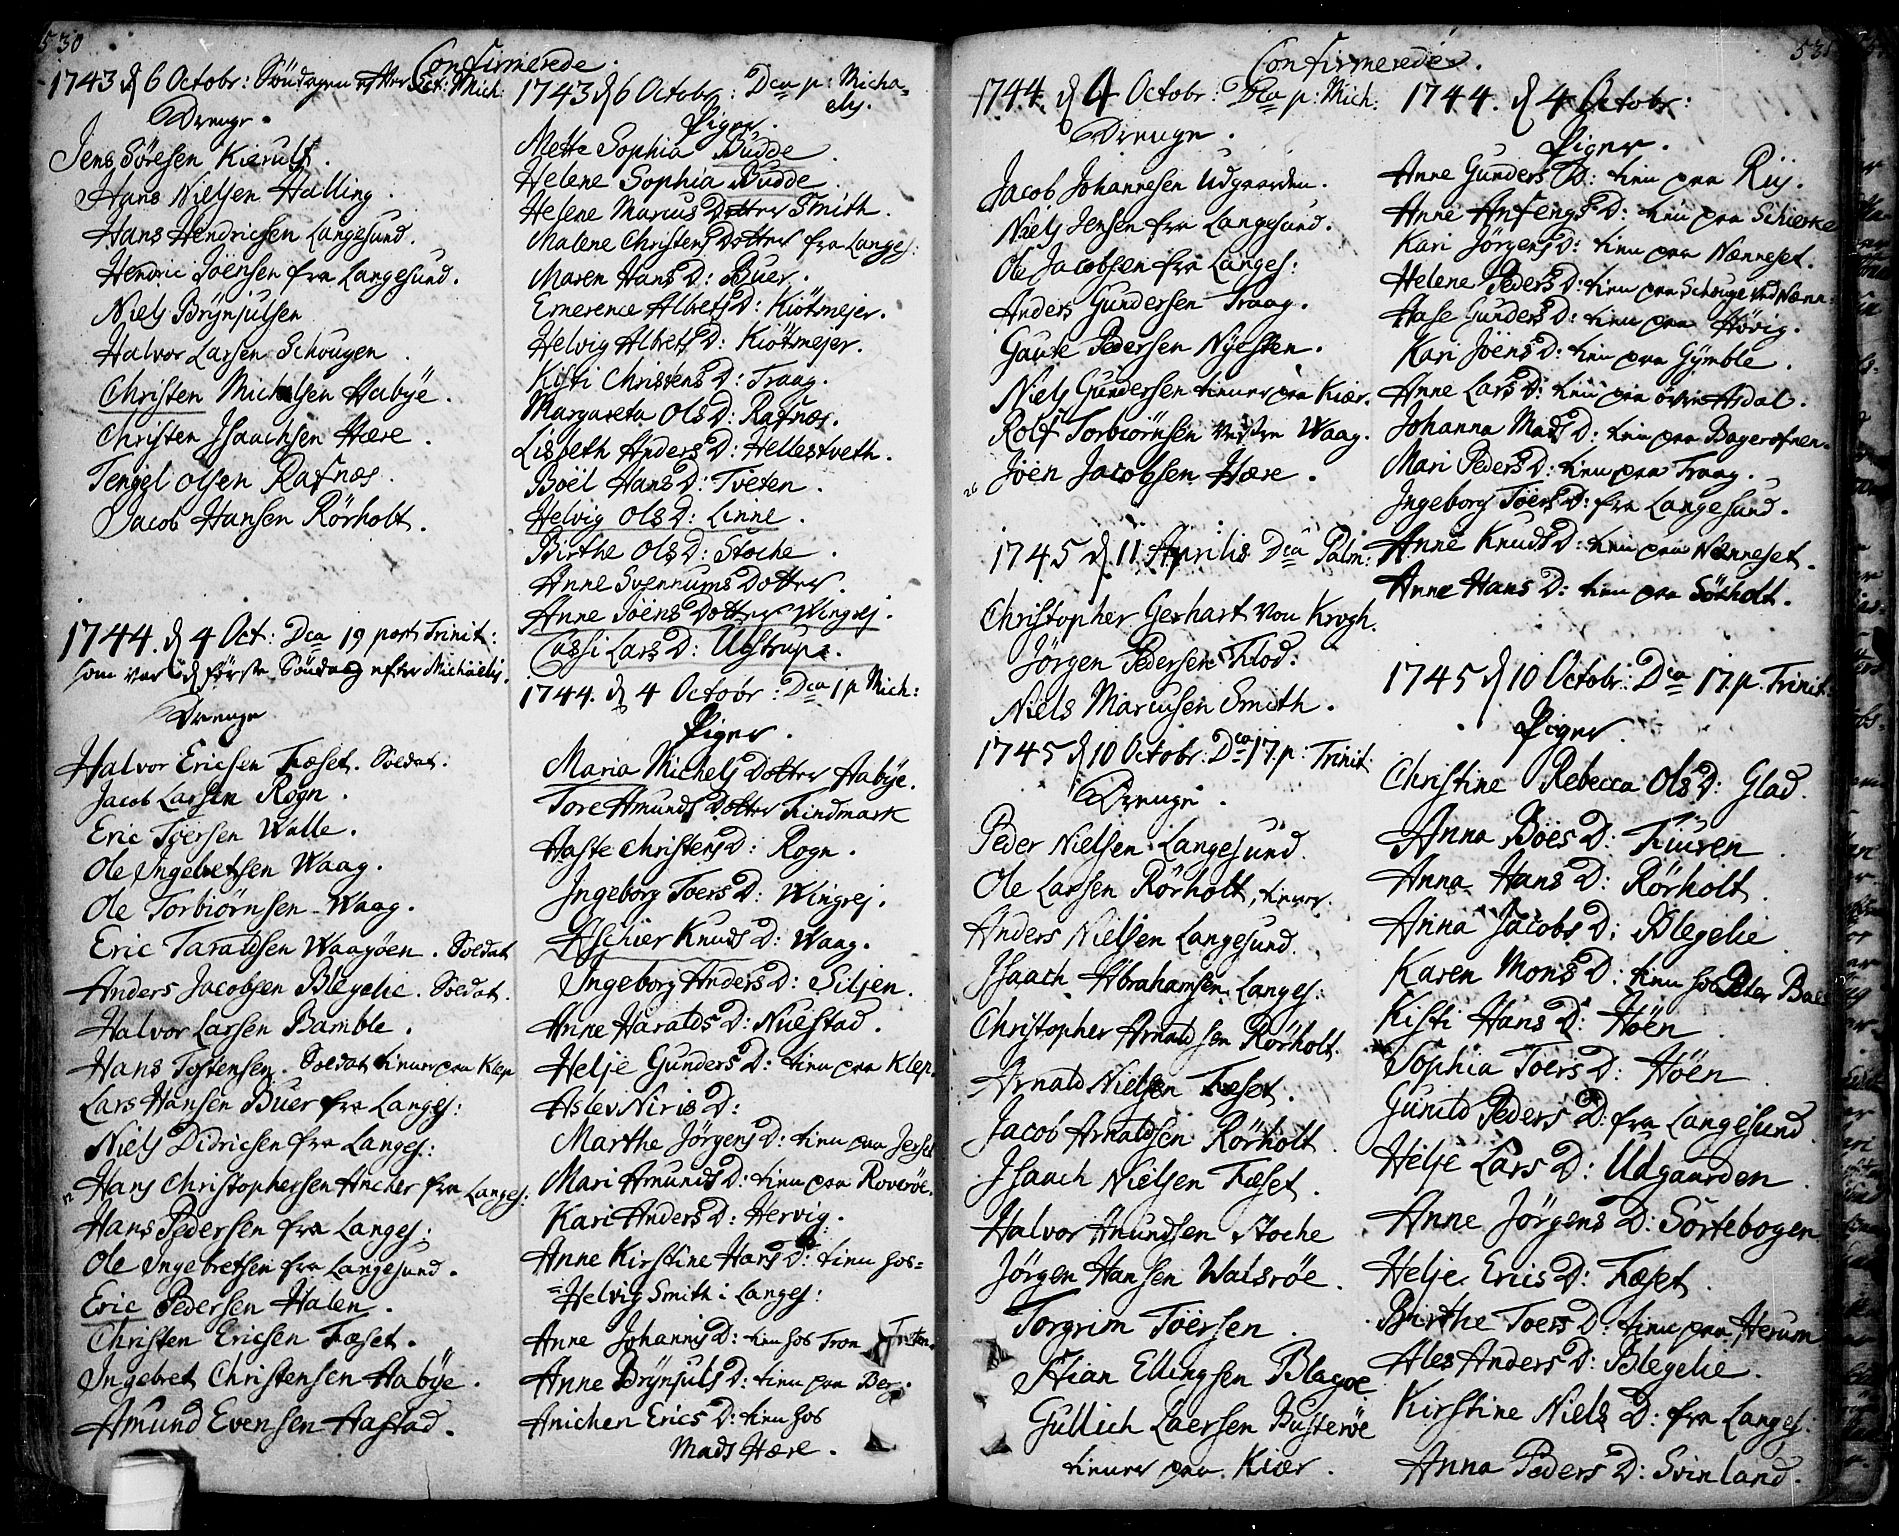 530
Confirmerede.
1743 d 6 Octobr: Söndagen efter Sct: Mich:
Drenge.
Jens Söresen Kierulf.
Hans Nielsen Halling.
Hans Hendrichsen Langesund.
Hendric Joensen fra Langesund.
Niels Brynjulsen
Halvor Larsen Schougen.
Christen Michelsen Habye.
Christen Isaachsen Hære.
Tengel Olsen Rafnæs.
Jacob Hansen Rörholt.
1744 d 4 Oct: Dca 19 post Trinit:
som var d förste Söndag efter Michaelis.
Drenge
Halvor Ericsen Fæset. Soldat.
Jacob Larsen Rogn.
Eric Toersen Walle.
Ole Ingebretsen Waag.
Ole Torbiörnsen Waag.
Eric Taraldsen Waagöen. Soldat
Anders Jacobsen Blegelie. Soldat.
Halvor Larsen Bamble.
Hans Tostensen. Soldat tiener paa Klep
Lars Hansen Buer fra Langes:
Niels Didricsen fra Langes:
Hans Christophersen Ancher fra Langes:
Hans Pedersen fra Langes:
Ole Ingebretsen fra Langesund.
Eric Pedersen Halen.
Christen Ericsen Fæset.
Ingebret Christensen Habye.
Amund Evensen Aastad.
1743 d 6 Octobr: Dca p: Micha=
elis.
Piger.
Mette Sophia Budde.
Helene Sophia Budde.
Helene Marcus Dotter Smith.
Malene Christens Dotter fra Langes:
Maren Hans D: Buer.
Emerence Alberts D: Kiötmejer.
Helvig Alberts D: Kiötmejer.
Kisti Christens D: Traag.
Margareta Ols D: Rafnæs.
Lisbeth Anders D: Hellestveth.
Boel Hans D: Tveten.
Helvig Ols D: Linne.
Birthe Ols D: Stoche.
Anne Svennums Dotter.
Anne Joens Dotter Wingrej.
Cassi Lars D: Ulstrup.
1744. d 4 Octobr: Dca 1 p Mich:
Piger.
Maria Michels Dotter Habye.
Tore Amunds Dotter Findmark
Haste Christens D: Rogn.
Ingeborg Toers D: Wingrej.
Aschier Knuds D: Waag.
Ingeborg Anders D: Siljen.
Anne Haralds D: Nuestad.
Helje Gunders D: tien paa Klep.
Aslev Niris D:
Marthe Jörgens D: tien paa Jerset
Mari Amunds D: tien paa Roveröe.
Kari Anders D: Hervig.
Anne Kirstine Hans D: tien hos=
=Helvig Smith i Langes:
Anne Johannis D: tien hos Tron
Anne Brynjuls D: tien paa Berg.
Anichen Erics D: tien hos
Mads Hære.
531
Confirmerede.
1744. d 4 Octobr: Dca p: Mich:
Drenge.
Jacob Johannesen Udgaarden.
Niels Jensen fra Langesund.
Ole Jacobsen fra Langes:
Anders Gundersen Traag.
Gaute Pedersen Nyesten.
Niels Gundersen tiener paa Kiær.
Rolf Torbiörnsen Vestre Waag.
26 Joen Jacobsen Hære.
1745 d 11 Aprilis Dca Palm:
Christopher Gerhart von Krogh.
Jörgen Pedersen Flod:
Niels Marcusen Smith.
1745 d 10 Octobr. Dca 17 p: Trinit:
Drenge.
Peder Nielsen Langesund.
Ole Larsen Rörholt, tiener.
Anders Nielsen Langesund.
Isaach Abrahamsen Langes:
Christopher Arnaldsen Rörholt.
Arnald Nielsen Fæset.
Jacob Arnaldsen Rörholt.
Isaach Nielsen Fæset.
Halvor Anundsen Stoche
Jörgen Hansen Walsröe.
Torgrim Toersen.
Stian Ellingsen Blagoe.
Gullich Laersen Busteröe
tiener paa Kiær.
1744. d 4 Octobr:
Piger.
Anne Gunders D: tien paa Riis.
Anne Anfengs D: tien paa Schierke
Kari Jörgens D: tien paa Nænneset.
Helene Peders D: tien paa Schouge ved Nænn:
Hase Gunders D: tien paa Hövig.
Kari Joens D: tien paa Gymble.
Anne Lars D: tien paa övre Asdal.
Johanna Mads D: tien paa Bagerofnen.
Mari Peders D: tien paa Traag.
Ingeborg Toers D: fra Langesund.
Anne Knuds D: tien paa Nænneset.
Anne Hans D: tien paa Sörholt.
1745 d 10 Octobr: Dca 17. p. Trinit.
Piger.
Christine Rebecca Ols D: Glad.
Anna Boes D: Fiuren
Anna Hans D: Rörholt
Anna Jacobs D: Blegelie
Karen Mons D: tien hos Peter Baes
Kisti Hans D: Höen
Sophia Toers D: Höen
Gunild Peders D: fra Langesund
Helje Lars D: Udgaarden
Anne Jörgens D: Sortebogen
Helje Erics D: Fæset.
Birthe Toers D: tien paa Herum
Ales Anders D: Blegelie.
Kirstine Niels D: fra Langes:
Anna Peders D: Svinland.